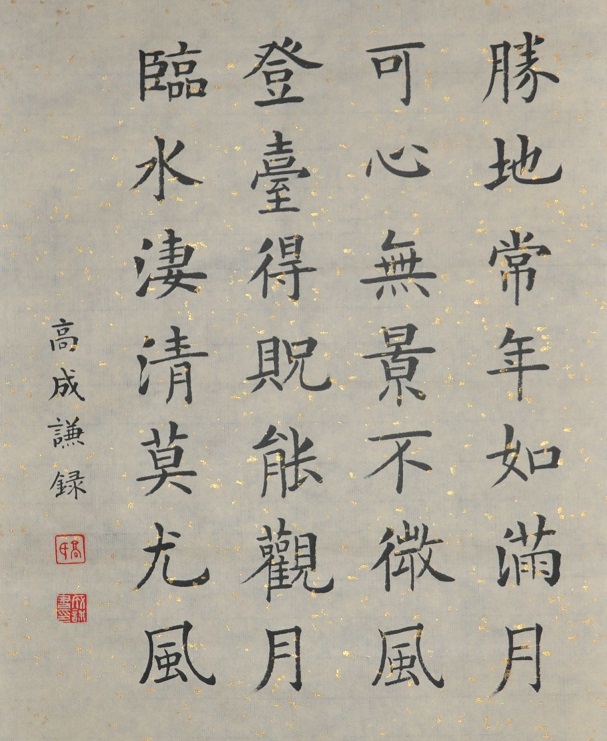 勝地常年如滿月
可心無景不微風
登臺得貺能觀月
臨水淒清莫尤風
高成謙録